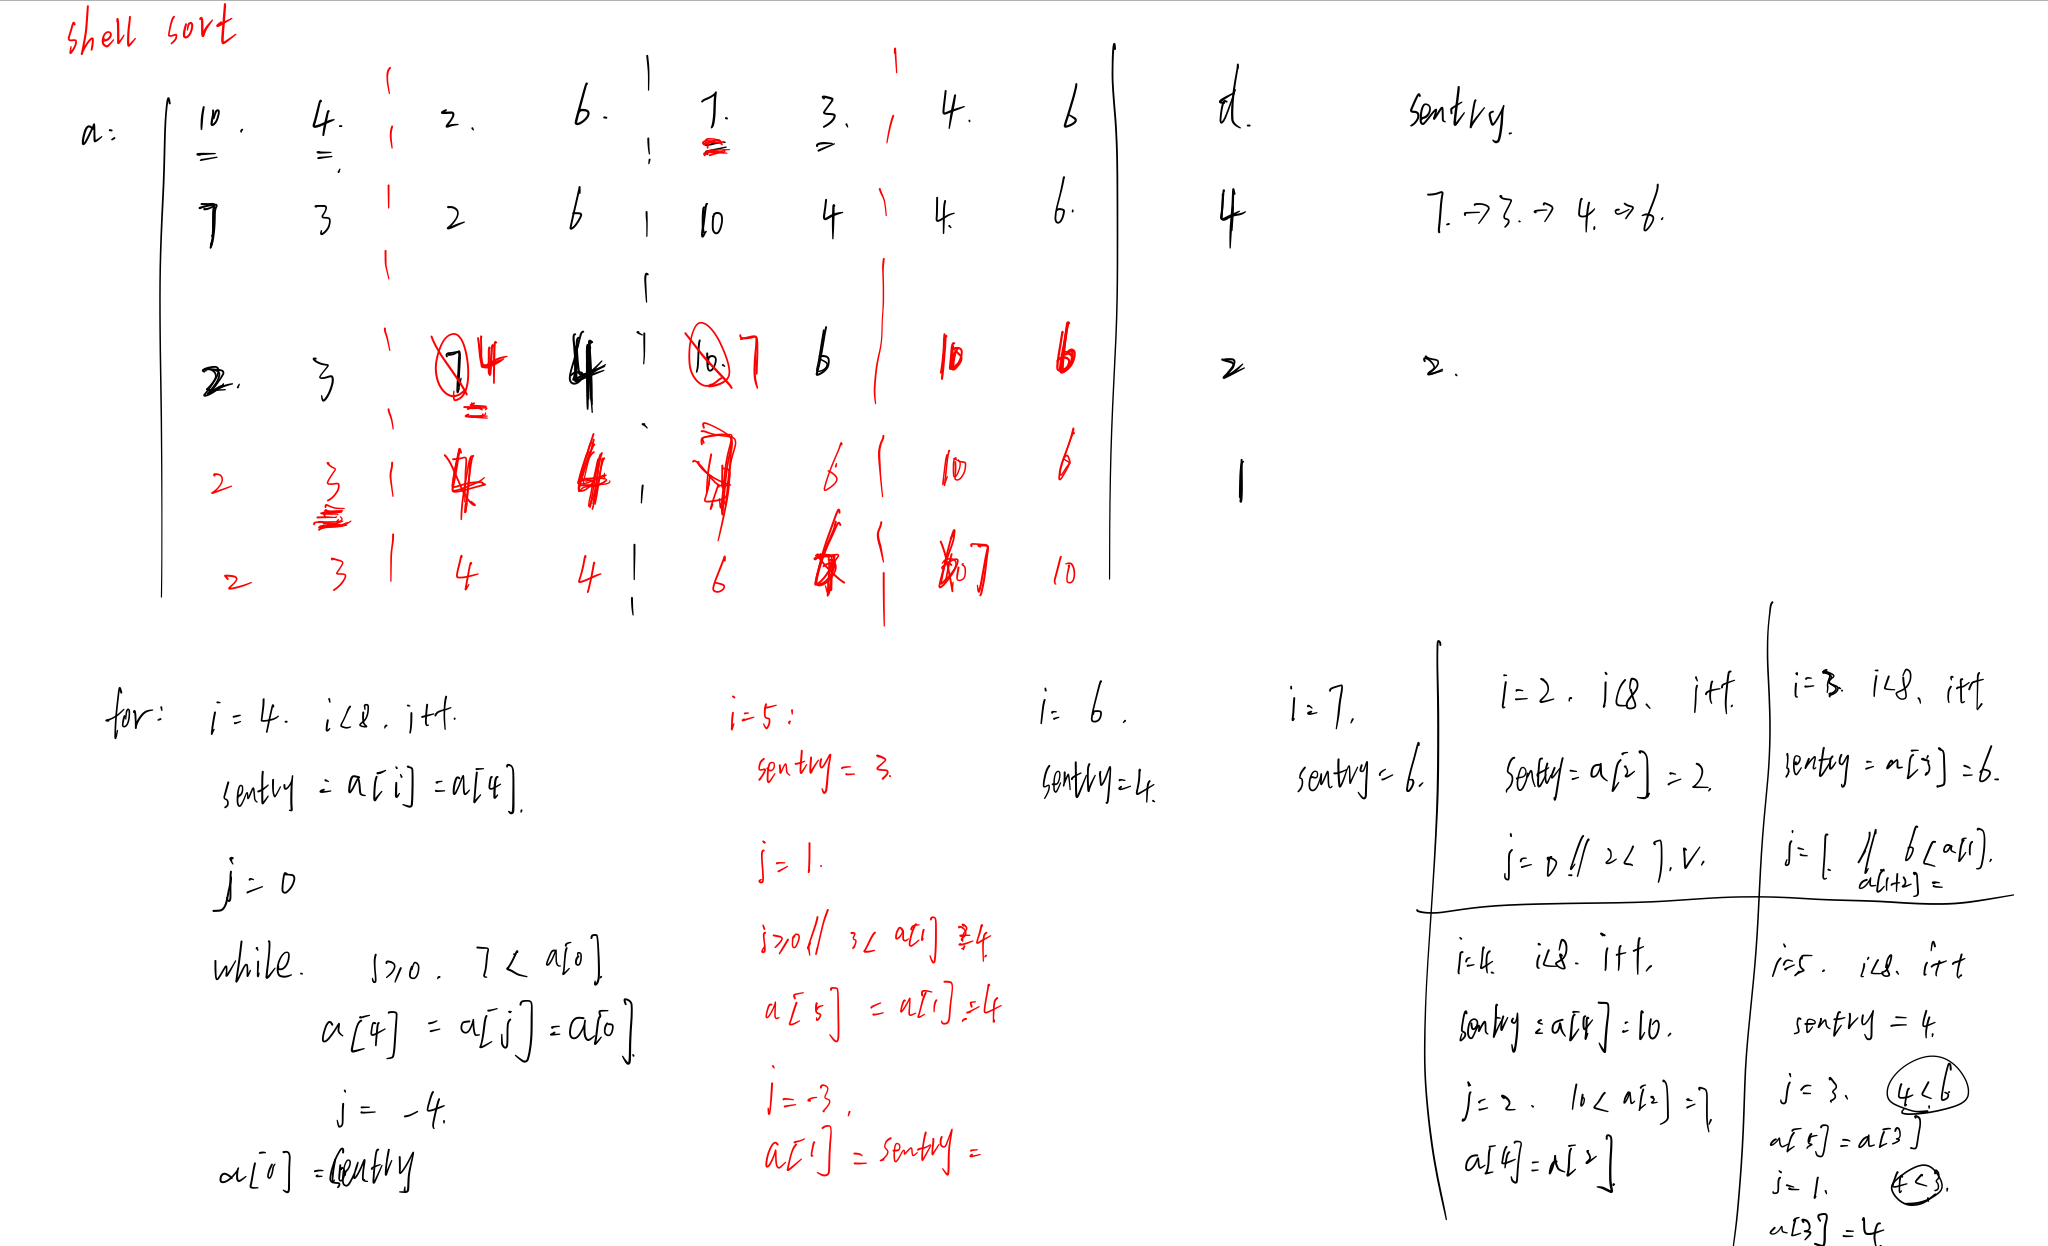 shell sort
a: 10. 4. 2. 6. 7. 3. 4. 6 d. sentry.
7 3 2 6 10 4 4. 6. 4 7. → 3. → 4. → 6.
2. 3 7 4 4 10. 7 6 10 6 2 2.
2 3 4 4 7 6 10 6 1
2 3 4 4 6 6 7 10
for: i = 4. i<8. i++.
sentry = a[i] = a[4].
j = 0
while. j≥0. 7 < a[0]
a[4] = a[j] = a[0].
j = -4.
a[0] = sentry
i=5:
sentry = 3.
j = 1.
j≥0 // 3 < a[1] = 4
a[5] = a[1] = 4
j = -3.
a[1] = sentry =
i= 6.
sentry=4.
i=7.
sentry=6.
i=2. i<8. i++.
sentry=a[2]=2.
j=0 // 2<7.v.
i=3. i<8. i++
sentry = a[3]=6.
j=1. // 6<a[1].
a[1+2] =
i=4. i<8. i++.
sentry=a[4]=10.
j=2. 10<a[2]=7.
a[4]=a[2].
i=5. i<8. i++
sentry = 4.
j= 3. 4<6
a[5]=a[3]
j=1. 4<3.
a[3]=4